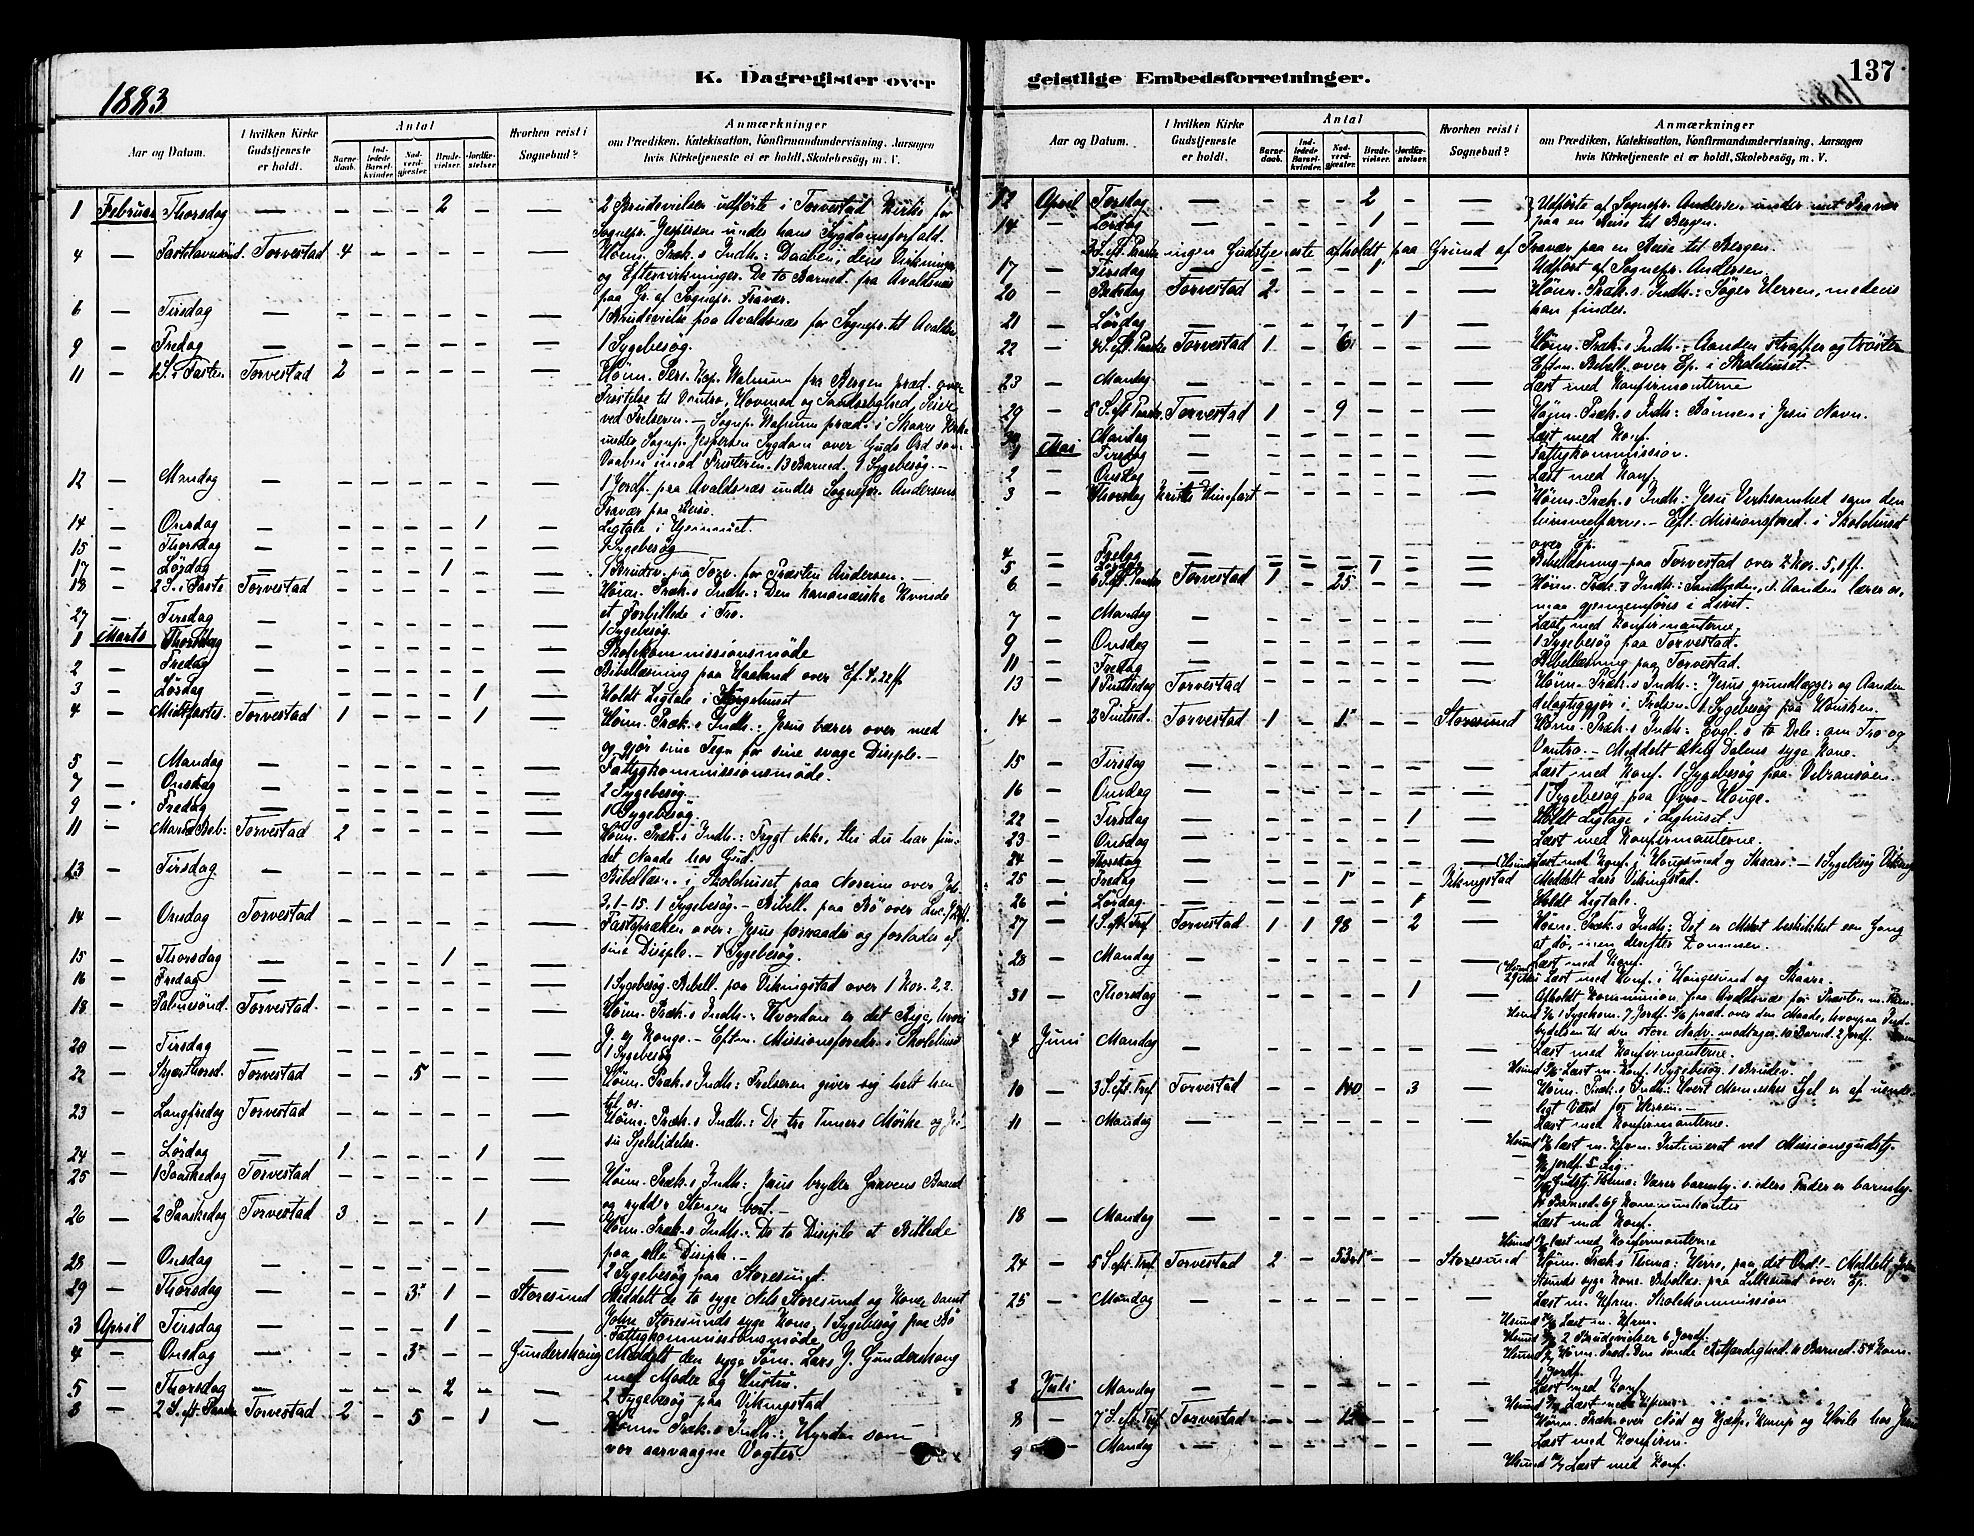 K. Dagregister over
1883
Aar og Datum.
I hvilken Kirke Gudstjeneste er holdt.
Antal
Barnedaab.
Indledede Barselkvinder.
Nadverdgjæster.
Brudevielser.
Jordfæstelser.
Hvorhen reist i Sognebud?
Anmærkninger
om Prædiken, Katekisation, Konfirmandundervisning, Aarsagen
hvis Kirketjeneste ei er holdt, Skolebesög, m. V.
1 Februar Thorsdag — — — — 2 — — 2 Brudevielser udförte i Torvestad Kirke for
Sognepr. Jespersen under hans Sygdomsforfald.
4 — Fastelavnsönd. Torvestad 4 — — — — — Höim. Præk.s Indh.: Daaben, dens Virkninger
og Eftervirkninger. De to Barned. fra Avaldsnæs
paa Gr. af Sognepr. Fravær.
6 — Tirsdag — — — — — — — 1 Brudevielse paa Avaldsnæs for Sognepr. til Avaldsn.
9 — Fredag — — — — — — — 1 Sygebesög.
11 — 1 S. i Fasten Torvestad 2 — — — — — Höim. Pers. Kap. Walnum fra Bergen præd. over
Fristelse til Vantro, Hovmod og
ved Frelseren. — Sognepr. Walnum præd. i Skaare Kirke
under Sognepr. Jespersens Sygdom over Guds Ord som
Vaaben imod Fristeren. 13 Barned. 1 Sygebesög —
12 — Mandag — — — — — — — 1 Jordf. paa Avaldsnæs under Sognepr. Andersens
Fravær paa Reise.
14 — Onsdag — — — — — 1 — Ligtale i Hjemmet.
15 — Thorsdag — — — — — — — 1 Sygebesög
17 — Lördag — — — — 1 — — 1 Brudev. paa Torv. for Præsten Andersen. —
18 — 2 S. i Faste Torvestad — — — — — — Höim. Præk.s Indh.: Den kananæiske Kvinde
et Forbillede i Tro.
27 — Tirsdag — — — — — — — 1 Sygebesög.
1 Marts Thorsdag — — — — — — — Skolekommissionsmöde
2 — Fredag — — — — — — — Bibellæsning paa Haaland over Ef. 4. 22 ff.
3 — Lördag — — — — — 1 — Holdt Ligtale i Sörgehuset
4 — Midtfastes. Torvestad 1 — — — 1 — Höim. Præk.s Indh.: Jesus bærer over med
og gjör sine Tegn for sine svage Disiple. —
5 — Mandag — — — — — — — Fattigkommissionsmöde.
7 — Onsdag — — — — — — — 2 Sygebesög
9 — Fredag — — — — — — — 1 Sygebesög.
11 — Mariæ Beb: Torvestad 2 — — — — — Höim. Præk.s Indh.: Frygt ikke, thi du har fundet
Naade hos Gud.
13 — Tirsdag — — — — — — — Bibellæsn. i Skolehuset paa Noreim over Joh.
21-15. 1 Sygebesög. — Bibell. paa Bö over Luc.
14 — Onsdag Torvestad — — — — — — Fastepræken over: Jesus forraades og forlades af
sine Disiple. — 1 Sygebesög.
15 — Thorsdag — — — — 1 — —
16 — Fredag — — — — — — — 1 Sygebesög. Bibell. paa Vikingstad over 1 Kor. 2,2.
18 — Palmesönd. Torvestad — — — — — — Höim. Præk.s Indh.: Hvordan er det Rige, hvori
J. er Konge. — Eftm. Missionsforedr. i Skolehuset
20 — Tirsdag — — — — — — — 1 Sygebesög
22 — Skjærthorsd. Torvestad — — 5 — — — Höim. Præk.s Indh.: Frelseren giver sig helt hen
til os.
23 — Langfredag Torvestad — — — — — — Höim. Præk.s Indh.: De tre Timers Mörke og Jesu
Sjælelidelse.
24 — Lördag — 1 — — — 1 —
25 — 1 Paaskedag Torvestad — — — — — — Höim. Præk.s Indh.: Jesus bryder Gravens Baand
og rydder Stenen bort. —
26 — 2 Paaskedag Torvestad 3 — — — 1 — Höim. Præk.s Indh.: De to Disiple et Billede
paa alle Disiple. —
28 — Onsdag — — — — — — — 2 Sygebesög paa Storesund.
29 — Thorsdag — — — 3 1 — Storesund Meddelt de to syge Nils Storesund og Kone samt
John Storesunds syge Kone, 1 Sygebesög paa Bö
3 April Tirsdag — — — — 1 — — Fattigkommissionsmöde
4 — Onsdag — — — 3 — — Gunderskaug Meddelt den syge Söm. Lars G. Gunderskaug
med Moder og Hustru.
5 — Thorsdag — — — — 2 — — 2 Sygebesög paa Vikingstad
8 — 2 S. eft. Paaske Torvestad 2 — 5 — 1 — Höim. Præk.s Indh.: Hyrden som
vor aarvaagne Vogter.
geistlige Embedsforretninger.
137
Aar og Datum.
I hvilken Kirke Gudstjeneste er holdt.
Antal
Barnedaab.
Indledede Barselkvinder.
Nadverdgjæster.
Brudevielser.
Jordfæstelser.
Hvorhen reist i Sognebud?
Anmærkninger
om Prædiken, Katekisation, Konfirmandundervisning, Aarsagen
hvis Kirketjeneste ei er holdt, Skolebesög, m. V.
12 April Torsdag — — — — 2 — — Udförte af Sognepr. Andersen under mit Fravær
14 — Lördag — — — — 1 — — paa en Reise til Bergen.
3 S. eft. Paaske ingen Gudstjeneste afholdt paa Grund af Fravær paa en Reise til Bergen.
17 — Tirsdag — — — — 1 — — Udfört af Sognepr. Andersen
20 — Bededag Torvestad 2 — — — — — Höim. Præk.s Indh.: Söger Herren, medens
han findes.
21 — Lördag — — — — — 1 —
22 — 4 S. eft. Paaske Torvestad 1 — 6 — — — Höim. Præk.s Indh.: Aanden straffer og tröster
Eftm. Bibell. over Ep. i Skolehuset.
23 — Mandag — — — — — — — Læst med Konfirmanterne
29 — 5 S. eft. Paaske Torvestad 1 — 9 — — — Höjm. Præk.s Indh.: Bönnen i Jesu Navn.
30 — Mandag — — — — — — — Læst med Konf.
1 Mai Tirsdag — — — — — — — Fattigkommission.
2 — Onsdag — — — — — — — Læst med Konf.
3 — Thorsdag Kristi Himmelfart — — — — — — Höim. Præk.s Indh.: Jesu Virksomhed som den
himmelfarne. — Eft. Missionsfored. i Skolehuset
over Ep.
4 — Fredag — — — — — — —
5 — Lördag — — — — 1 — — Bibellæsning paa Torvestad over 2 Kor. 5,1 ff.
6 — 6 S. eft. Paaske Torvestad 1 — 25 — — — Höim. Præk.s Indh.: Sandheden, d. Aanden lærer os,
maa gjennemföres i Livet.
7 — Mandag — — — — — — — Læst med Konfirmanterne
9 — Onsdag — — — — — — — 1 Sygebesög paa Torvestad.
11 — Fredag — — — — — — — Bibellæsning paa Torvestad.
13 — 1 Pintsedag Torvestad — — — — — — Höim. Præk.s Indh.: Jesus grundlægger og Aanden
delagtiggjör i Frelsen. 1 Sygebesög paa
14 — 2 Pintsed. Torvestad 1 — 1 — — Storesund Höim. Præk.s Indh.: Evgl.s to Dele: om Tro og
Vantro. — Meddelt Dalens syge Kone.
15 — Tirsdag — — — — — — — Læst med Konf. 1 Sygebesög paa Vibransöen.
16 — Onsdag — — — — — — — 1 Sygebesög paa Övre-Hauge.
22 — Tirsdag — — — — — 1 — Holdt Ligtale i Lighuset.
23 — Onsdag — — — — — — — Læst med Konfirmanterne.
24 — Thorsdag — — — — — — — Læst med Konf. i Haugesund og Skaare. — 1 Sygebesög
25 — Fredag — — — 1 — — Vikingstad Meddelt Lars Vikingstad.
26 — Lördag — — — — — 1 — Holdt Ligtale.
27 — 1 S. eft. Tref. Torvestad 1 1 98 — 2 — Höim. Præk.s Indh.: Det er Msket beskikket een Gang
at dö, men derefter Dommen.
28 — Mandag — — — — — — — Læst med Konf.
Læst med Konf. i Haugesund og Skaare.
31 — Thorsdag — — — — — 1 — Afholdt Kommunion paa Avaldsnæs for Præsten
1 Sygekom. 7 Jordf. præd. over den Maade, hvorpaa Indbydelsen
til den store Nadv. modtages. 10 Barned. 2 Jordf.
4 Juni Mandag — — — — — — — Læst med Konfirmanterne.
Læst m. Konf. 1 Sygebesög. 1 Brudev.
10 — 3 S. eft. Tref. Torvestad — — 140 — 3 — Höim. Præk.s Indh.: Hvert Menneskes Sjel er af uendeligt
Værd for Herren. —
11 — Mandag — — — — — — — Læst med Konfirmanterne.
læst m. Kfrm. Intimeret ved Missionsgudstj.
Thema: Værer barmhj. s. eders Fader er barmhj.
Barned. 69 Kommunikanter
18 — Mandag — — — — — — — Læst med Konf.
læst med Konfirmanterne
24 — 5 S. eft. Tref. Torvestad 2 — 53 — — Storesund Höim. Præk.s Thema: Herre, paa det Ord! — Meddelt
syge Kone. Bibellæs. paa Litlesund over Ep.
25 — Mandag — — — — — — — Læst m. Kfrm. Skolekommission
Læst m. Kfrm.
2 Brudevielser 6 Jordf.
Höim. Præd. Den sande Retfærdighed. 11 Barned. 54 Kom.
1 Jordf.
2 Juli Mandag — — — — — — — Læst med Konf.
Læst med Kfrm.
8 — 7 S. eft. Tref. Torvestad — — — — — Höim. Præk. over Nöd og Hjælp, Kamp og Hvile hos Jesus
9 — Mandag — — — — — — — Læst med Konfirm.
Læst med Konf.